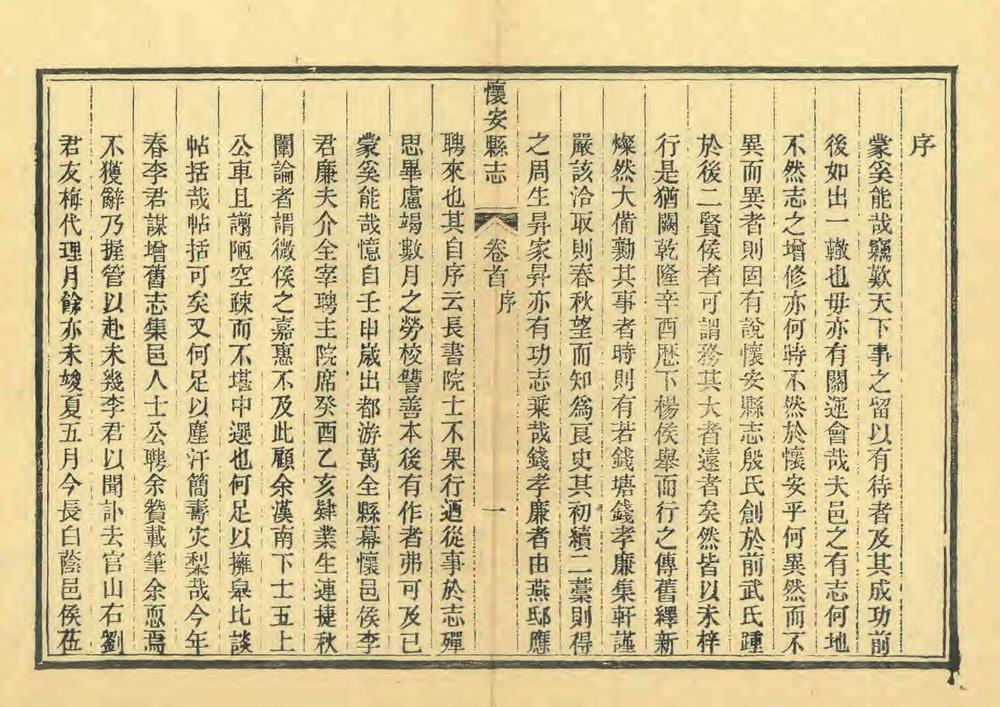 序
蒙奚能哉竊歎天下事之留以有待者及其成功前
後如出一轍也毋亦有關運會哉夫邑之有志何地
不然志之增修亦何時不然於懷安乎何異然而不
異而異者則固有說懷安縣志殷氏創於前武氏踵
於後二賢侯者可謂務其大者遠者矣然皆以未梓
行是猶闕乾隆辛酉歷下楊侯舉而行之傳舊繹新
燦然大備勷其事者時則有若錢塘錢孝廉集軒謹
嚴該洽取則春秋望而知爲良史其初續二藁則得
之周生昇家昇亦有功志乘哉錢孝廉者由燕邸應
懷安縣志
卷首
序
一
聘來也其自序云長書院士不果行迺從事於志殫
思畢慮竭數月之勞校讐善本後有作者弗可及已
蒙奚能哉憶自壬申歲出都游萬全縣幕懷邑侯李
君廉夫介全宰聘主院席癸酉乙亥肄業生連捷秋
闈論者謂微侯之嘉惠不及此顧余漢南下士五上
公車且謭陋空疎而不堪中選也何足以擁皋比談
帖括哉帖括可矣又何足以塵汗簡壽灾梨哉今年
春李君謀增舊志集邑人士公聘余贊載筆余恧焉
不獲辭乃握管以赴未幾李君以聞訃去官山右劉
君友梅代理月餘亦未竣夏五月今長白蔭邑侯莅